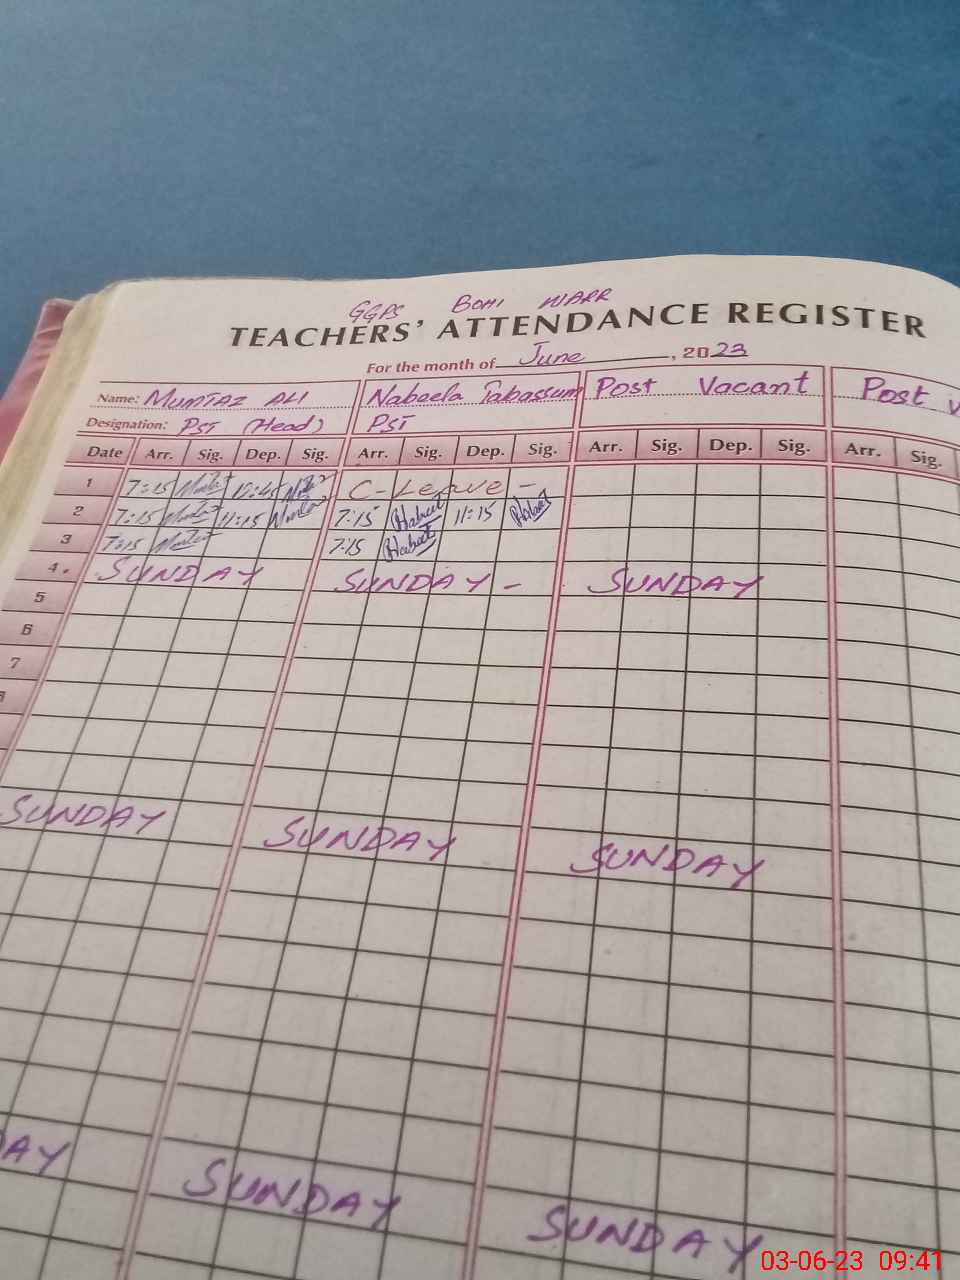 GGPS BOHI WARR
TEACHERS' ATTENDANCE REGISTER
For the month of June, 2023
Name: MUMTAZ ALI Nabeela Tabassum Post Vacant Post V
Designation: PST (Head) PST
Date Arr. Sig. Dep. Sig. Arr. Sig. Dep. Sig. Arr. Sig. Dep. Sig. Arr. Sig.
1 7:15 10:45 C-Leave -
2 7:15 11:15 7:15 11:15
3 7:15 7:15
4. SUNDAY SUNDAY - SUNDAY
5
6
7
SUNDAY SUNDAY SUNDAY
AY SUNDAY SUNDAY
03-06-23 09:41